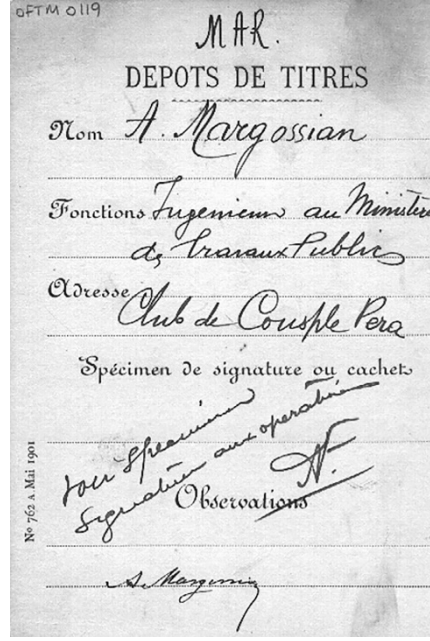 OFTM 0119
MAR.
DEPOTS DE TITRES
Nom A. Margossian
Fonctions Ingenieur au Ministère
de Travaux Public
Adresse
Club de Constple Pera
Spécimen de signature ou cachet
pour specimen
signature aux operation
Observations
A. Margossian
Nº 762 A Mai 1901